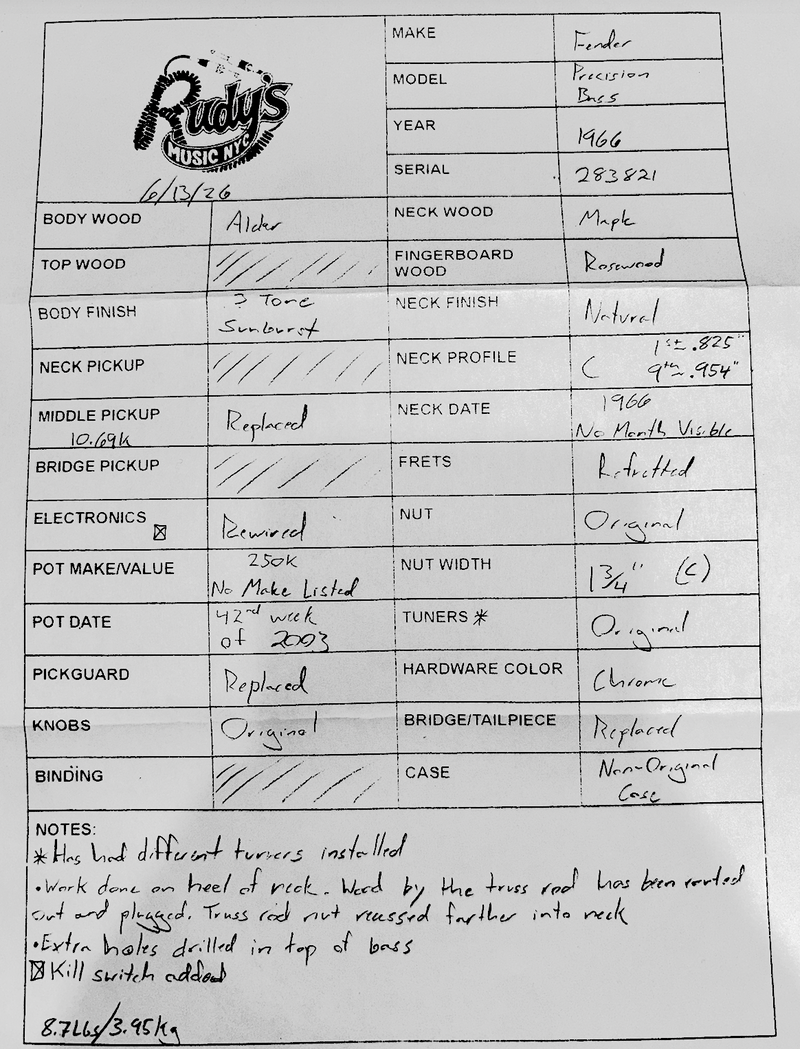 Rudy's
MUSIC NYC
6/13/26
MAKE
Fender
MODEL
Precision
Bass
YEAR
1966
SERIAL
283821
BODY WOOD
Alder
NECK WOOD
Maple
TOP WOOD
FINGERBOARD
WOOD
Rosewood
BODY FINISH
3 Tone
Sunburst
NECK FINISH
Natural
NECK PICKUP
NECK PROFILE
C
1st ~ .825"
9th ~ .954"
MIDDLE PICKUP
10.69K
Replaced
NECK DATE
1966
No Month Visible
BRIDGE PICKUP
FRETS
Refretted
ELECTRONICS ☒
Rewired
NUT
Original
POT MAKE/VALUE
250K
No Make Listed
NUT WIDTH
1 3/4" (C)
POT DATE
42nd week
of 2003
TUNERS *
Original
PICKGUARD
Replaced
HARDWARE COLOR
Chrome
KNOBS
Original
BRIDGE/TAILPIECE
Replaced
BINDING
CASE
Non-Original
Case
NOTES:
* Has had different tuners installed
• Work done on heel of neck. Wood by the truss rod has been routed
out and plugged. Truss rod nut recessed farther into neck
• Extra holes drilled in top of bass
☒ Kill switch added
8.7Lbs/3.95kg